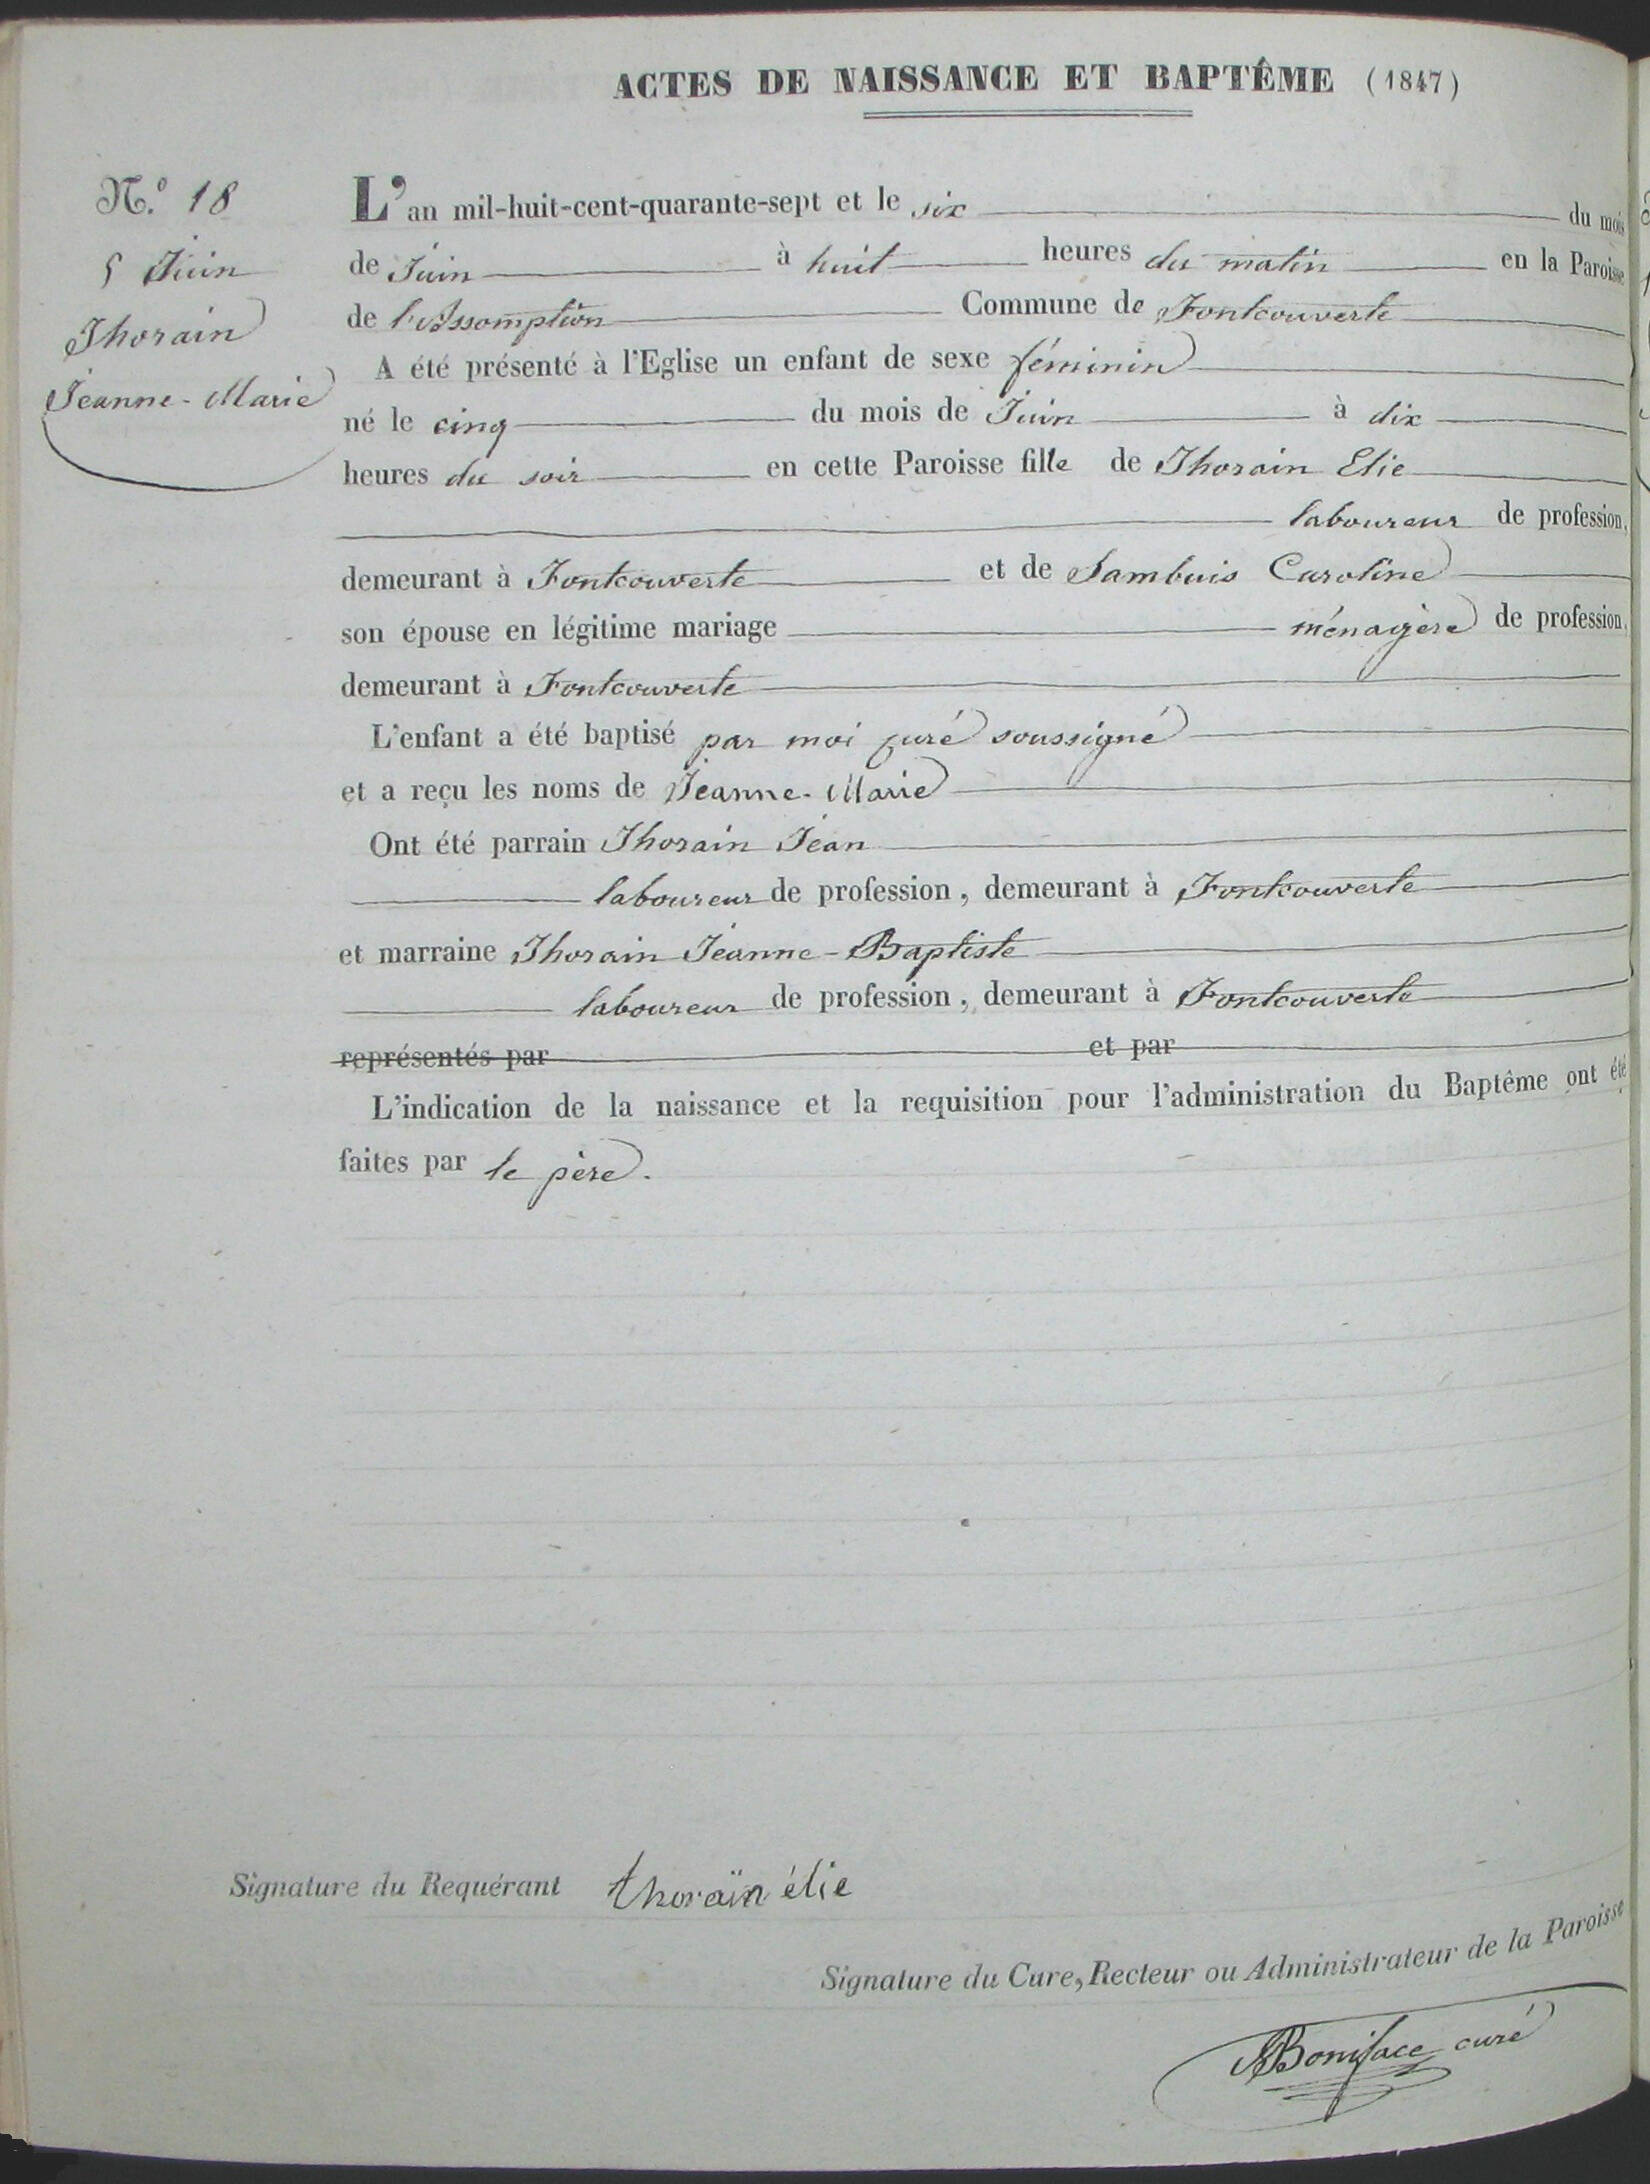 ACTES DE NAISSANCE ET BAPTÊME (1847)
N.º 18
5 Juin
Thorain
Jeanne-Marie
L'an mil-huit-cent-quarante-sept et le six du mois
de Juin à huit heures du matin en la Paroisse
de l'Assomption Commune de Fontcouverte
A été présenté à l'Eglise un enfant de sexe féminin
né le cinq du mois de Juin à dix
heures du soir en cette Paroisse fille de Thorain Elie
laboureur de profession,
demeurant à Fontcouverte et de Sambuis Caroline
son épouse en légitime mariage ménagère de profession,
demeurant à Fontcouverte
L'enfant a été baptisé par moi curé soussigné
et a reçu les noms de Jeanne-Marie
Ont été parrain Thorain Jean
laboureur de profession, demeurant à Fontcouverte
et marraine Thorain Jeanne-Baptiste
laboureur de profession, demeurant à Fontcouverte
représentés par et par
L'indication de la naissance et la requisition pour l'administration du Baptême ont été
faites par le père.
Signature du Requérant thoraïn élie
Signature du Cure, Recteur ou Administrateur de la Paroisse
Boniface curé